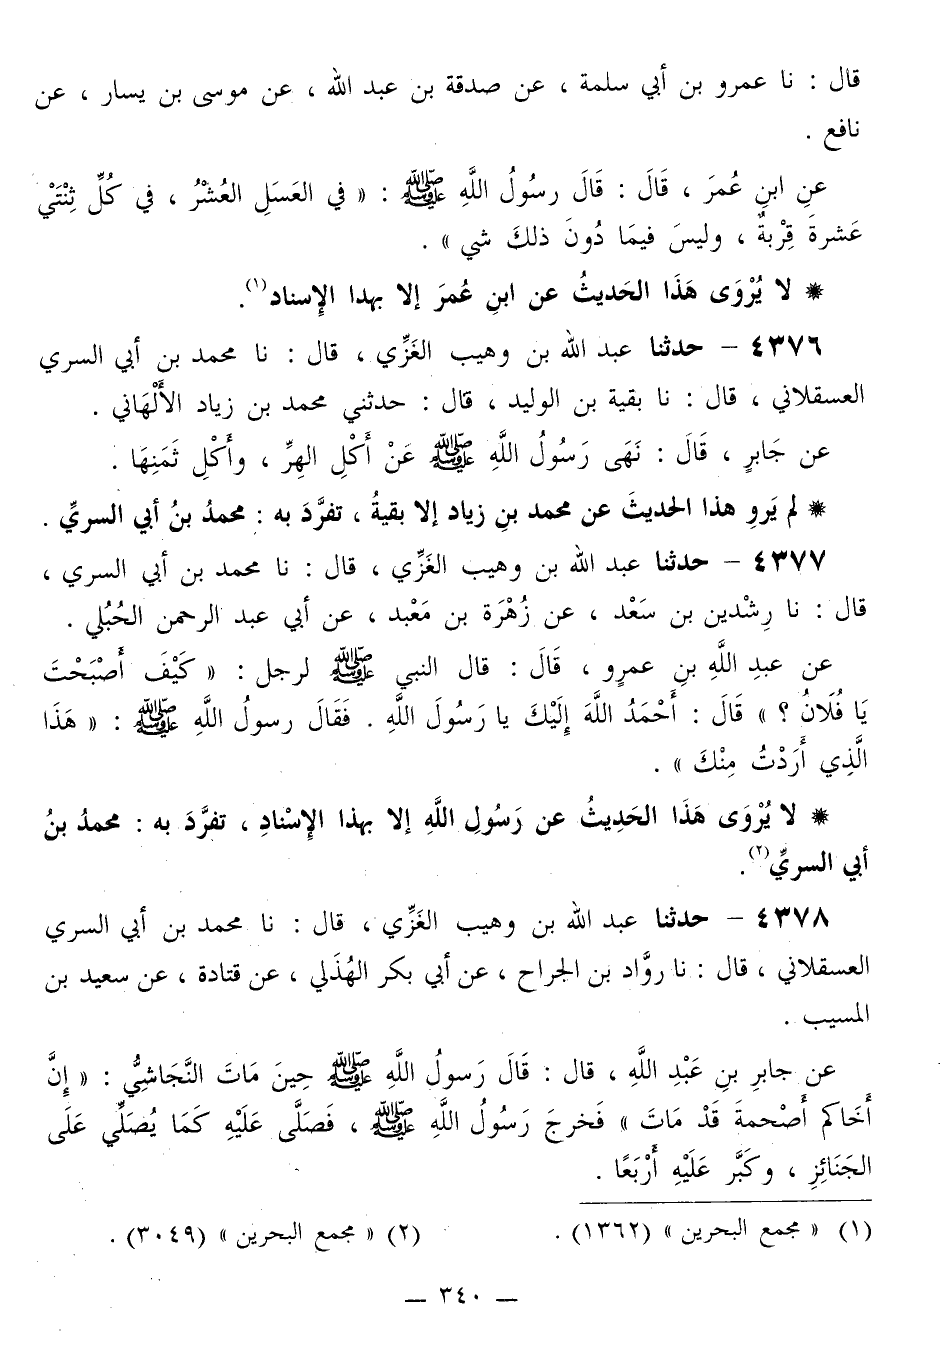 قال : نا عمرو بن أبي سلمة ، عن صدقة بن عبد الله ، عن موسى بن يسار ، عن
نافع .
عنِ ابنِ عُمرَ ، قَالَ : قَالَ رسُولُ اللَّهِ ﷺ : « في العَسَلِ العُشْرُ ، في كُلِّ ثِنْتَيْ
عَشرةَ قِربةٌ ، وليسَ فيمَا دُونَ ذلكَ شي » .
* لا يُرْوَى هَذَا الحَديثُ عن ابنِ عُمرَ إلا بهدا الإِسناد(١).
٤٣٧٦ – حدثنا عبد الله بن وهيب الغَزِّي ، قال : نا محمد بن أبي السري
العسقلاني ، قال : نا بقية بن الوليد ، قال : حدثني محمد بن زياد الأَلْهَاني .
عن جَابرٍ ، قَالَ : نَهَى رَسُولُ اللَّهِ ﷺ عَنْ أَكْلِ الهِرِّ ، وأَكْلِ ثَمَنِهَا .
* لم يَروِ هذا الحديثَ عن محمد بنِ زياد إلا بقيةُ ، تفرَّدَ به : محمدُ بنُ أبي السريِّ .
٤٣٧٧ – حدثنا عبد الله بن وهيب الغَزِّي ، قال : نا محمد بن أبي السري ،
قال : نا رِشْدين بن سَعْد ، عن زُهْرَة بن مَعْبد ، عن أبي عبد الرحمن الحُبُلي .
عن عبدِ اللَّهِ بنِ عمرٍو ، قَالَ : قال النبي ﷺ لرجل : « كَيْفَ أَصْبَحْتَ
يَا فُلَانُ ؟ » قَالَ : أَحْمَدُ اللَّهَ إِلَيْكَ يا رَسُولَ اللَّهِ . فَقَالَ رسولُ اللَّهِ ﷺ : « هَذَا
الَّذِي أَرَدْتُ مِنْكَ » .
* لا يُرْوَى هَذَا الحَدِيثُ عن رَسُولِ اللَّهِ إلا بهذا الإِسْنادِ ، تفرَّدَ به : محمدُ بنُ
أبي السريِّ(٢).
٤٣٧٨ – حدثنا عبد الله بن وهيب الغَزِّي ، قال : نا محمد بن أبي السري
العسقلاني ، قال : نا روَّاد بن الجراح ، عن أبي بكر الهُذَلي ، عن قتادة ، عن سعيد بن
المسيب .
عن جابرِ بنِ عَبْدِ اللَّهِ ، قال : قَالَ رَسولُ اللَّهِ ﷺ حِينَ مَاتَ النَّجَاشِيُّ : « إِنَّ
أَخَاكم أَصْحمةَ قَدْ مَاتَ » فَخرجَ رَسُولُ اللَّهِ ﷺ ، فَصَلَّى عَلَيْهِ كَمَا يُصَلِّي عَلَى
الجَنَائِزِ ، وكَبَّر عَلَيْهِ أَرْبَعًا .
(١) « مجمع البحرين » (١٣٦٢) . (٢) « مجمع البحرين » (٣٠٤٩) .
— ٣٤٠ —